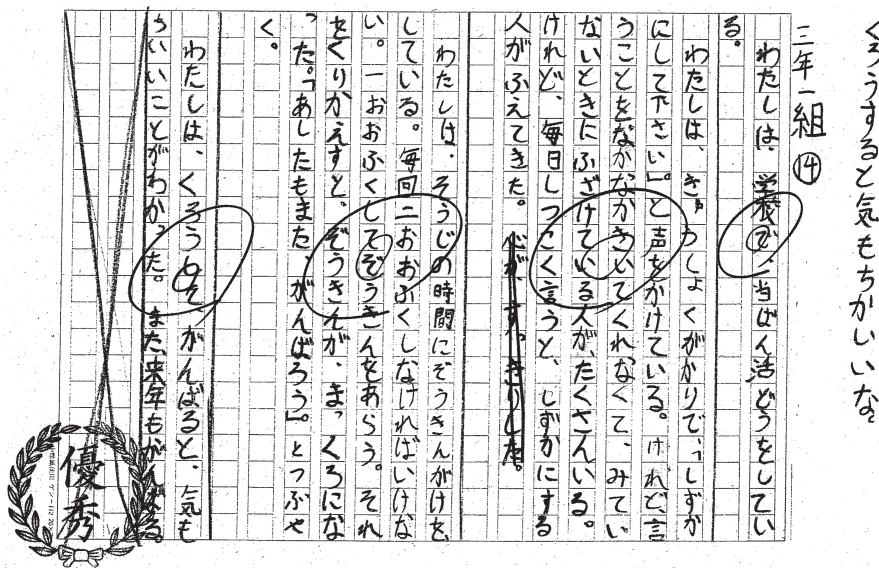 くろうすると気もちがいいな。
三年一組 ⑭
わたしは、学校で、当ばん活どうをしてい
る。
わたしは、きゅうしょくがかりで、「しずか
にして下さい」。と声をかけている。けれど、言
うことをなかなかきいてくれなくて、みてい
ないときにふざけている人が、たくさんいる。
けれど、毎日しつこく言うと、しずかにする
人がふえてきた。心がすっきりした。
わたしは、そうじの時間にぞうきんがけを、
している。毎回二おおふくしなければいけな
い。一おおふくしてぞうきんをあらう。それ
をくりかえすと、ぞうきんが、まっくろにな
った。「あしたもまた、がんばろう」。とつぶや
く。
わたしは、くろうして、がんばると、気も
ちいいことがわかった。また、来年もがんばる。
優秀